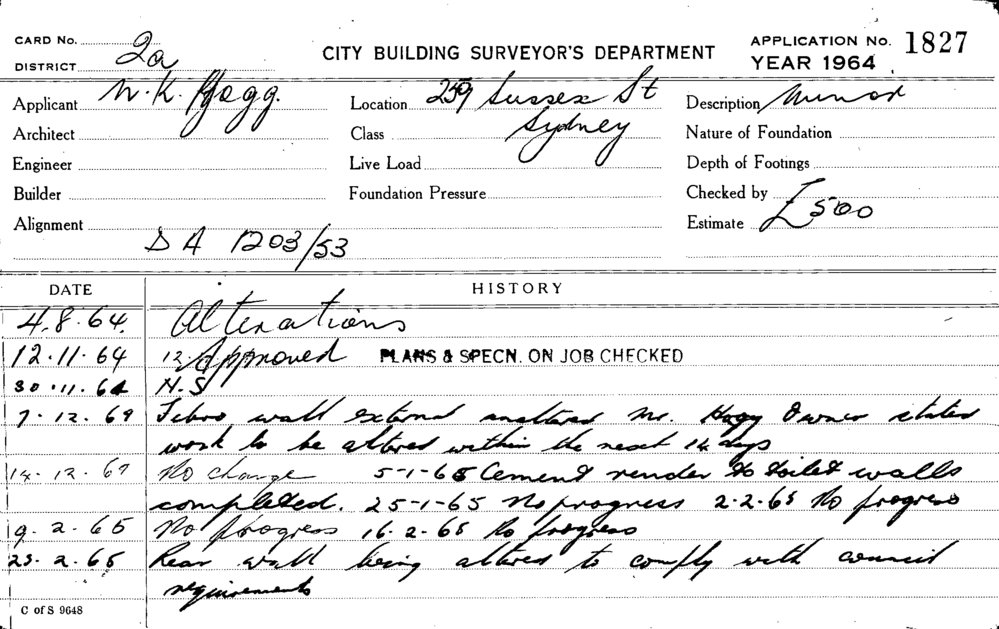 CARD No.
DISTRICT 2a
CITY BUILDING SURVEYOR'S DEPARTMENT
APPLICATION No. 1827
YEAR 1964
Applicant N.K. Hogg.
Location 259 Sussex St
Sydney
Description Minor
Architect
Class
Nature of Foundation
Engineer
Live Load
Depth of Footings
Builder
Foundation Pressure
Checked by
Alignment
Estimate £500
DA 1203/53
DATE HISTORY
4.8.64. Alterations
12.11.64 12 Approved PLANS & SPECN. ON JOB CHECKED
30.11.64 N.S
7.12.64 Fibro wall external Mr. Hogg Owner states
work to be altered within the next 14 days
14.12.64 No change 5-1-65 Cement render to toilet walls
completed. 25-1-65 No progress 2-2-65 No progress
9.2.65 No progress 16-2-65 No progress
23.2.65 Rear wall being altered to comply with council
requirements
C of S 9648